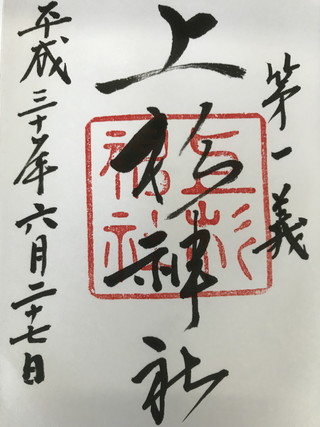 第一義
上杉神社
上杉神社
平成三十年六月二十七日